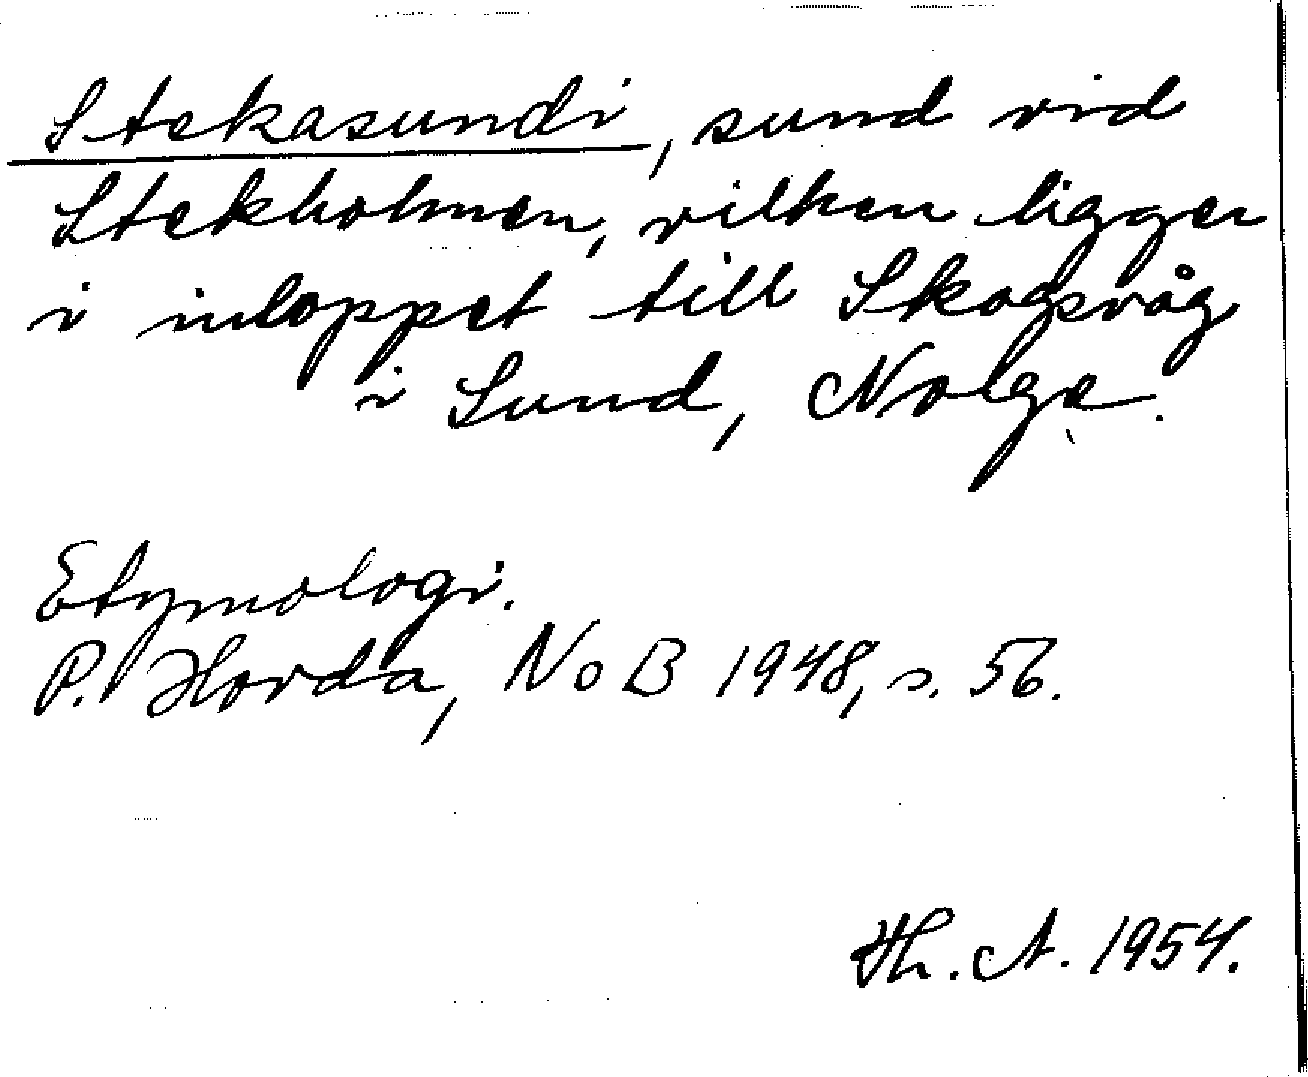 Stekasundi, sund vid
Stekholmen, vilken ligger
i inloppet till Skogsvåg
i Sund, Nolge.
Etymologi.
P. Horda, NoB 1948, s. 56.
Th. A. 1954.